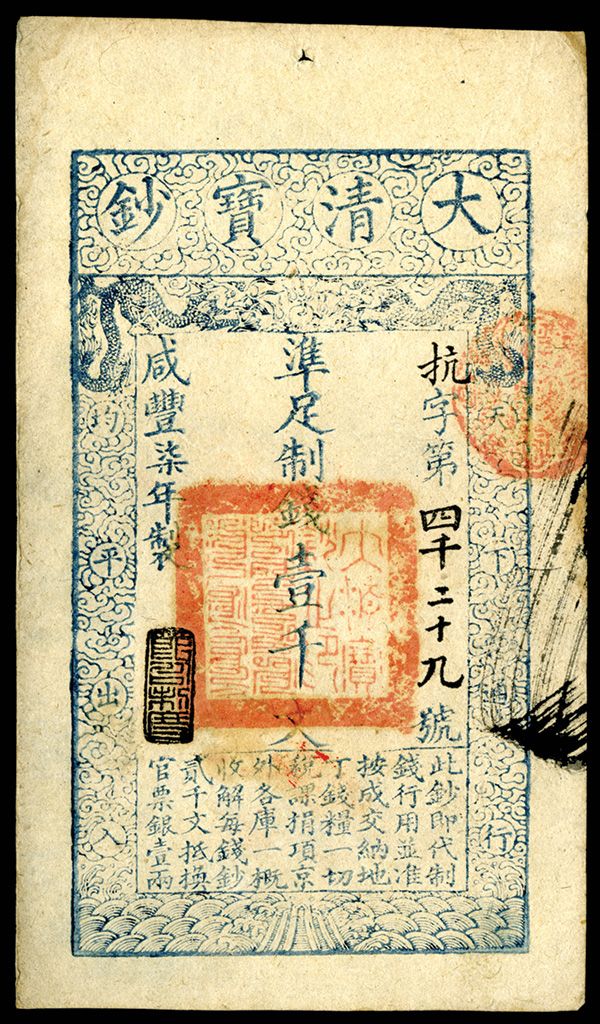 大清寶鈔
天下通行
抗字第四千二十九號
準足制錢壹千文
咸豐柒年製
均平出入
此鈔即代制
錢行用並准
按成交納地
丁錢糧一切
稅課捐項京
外各庫一概
收解每錢鈔
貳千文抵換
官票銀壹兩